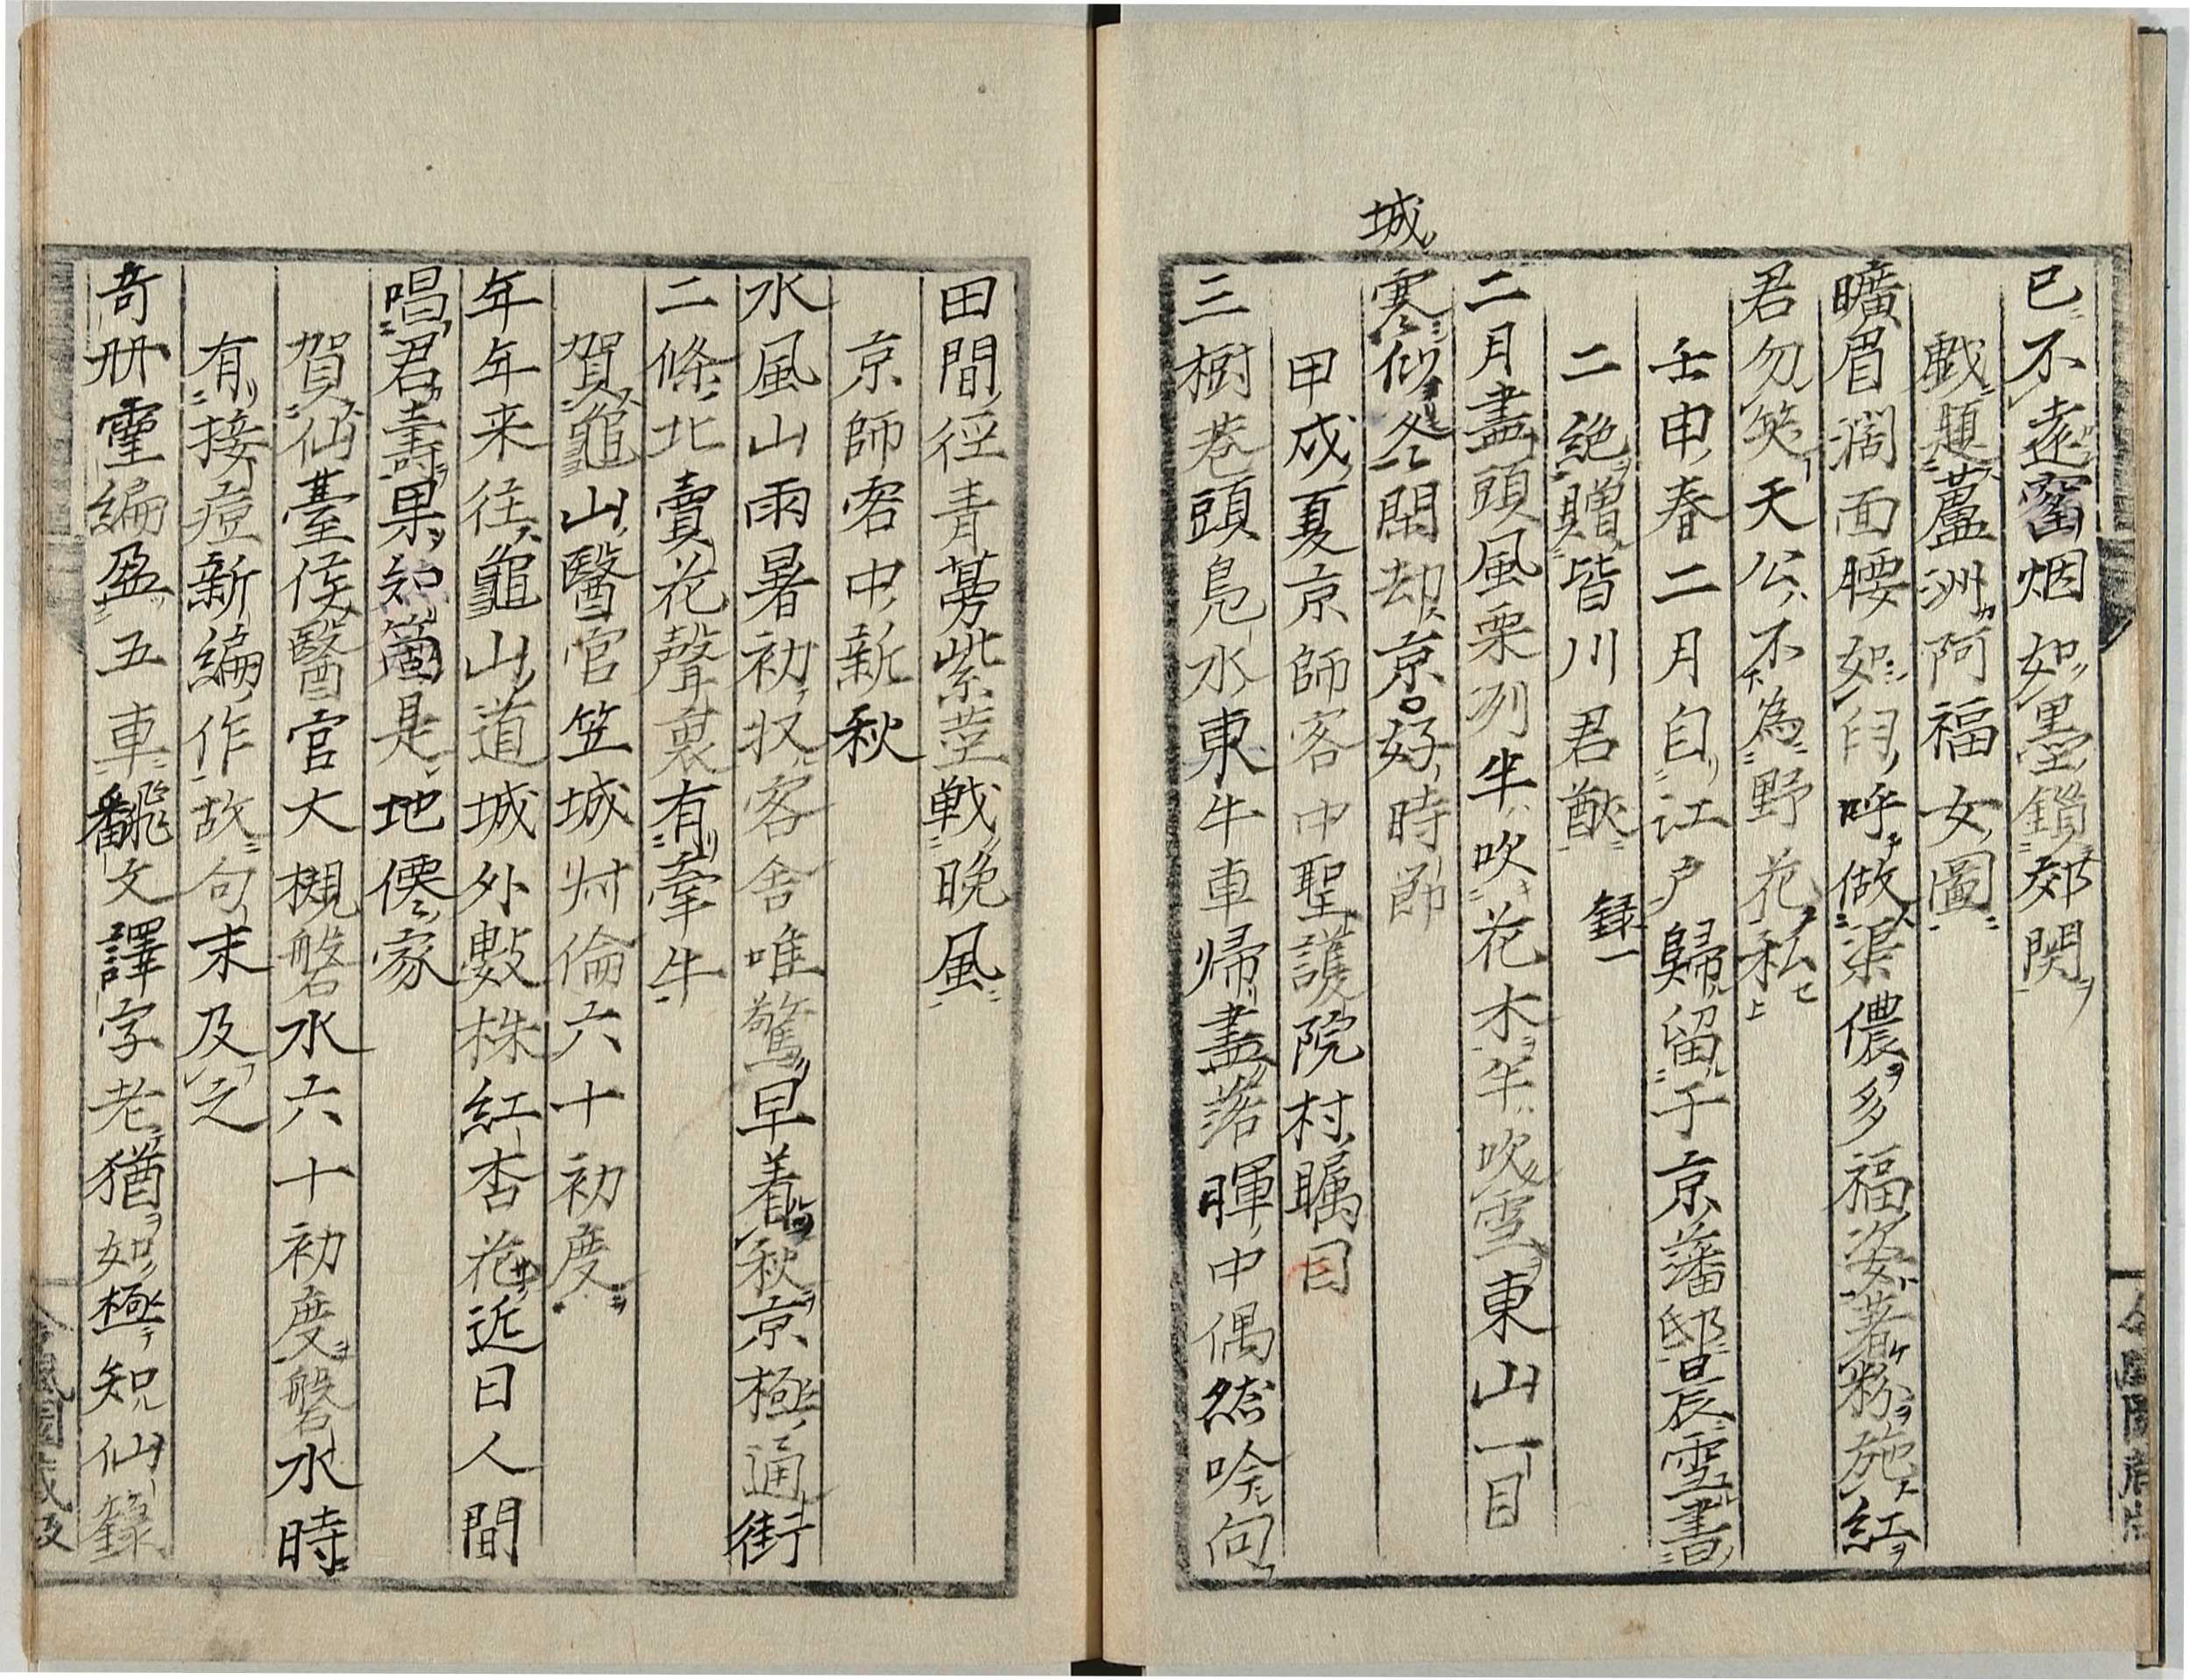 城
已不遠窰烟如墨鎖郊関
戯題蘆洲阿福女圖
曠眉濶面腰如臼呼做渠儂多福姿著粉施紅
君勿笑天公不為野花私
壬申春二月自江戸歸留于京藩邸晨雪書
二絶贈皆川君猷 録一
二月盡頭風栗列半吹花木半吹雪東山一目
寒似冬閒却京好時節
甲戌夏京師客中聖護院村矚目
三樹巷頭鳧水東牛車帰盡落暉中偶然吟向
田間徑青蒭紫莖戦晩風
京師客中新秋
水風山雨暑初収客舎唯驚早着秋京極通街
二條北賣花聲裏有牽牛
賀龜山醫官笠城州倫六十初度
年年来往龜山道城外數株紅杏花近日人間
唱君壽果知箇是地僊家
賀仙臺侯醫官大槻磐水六十初度磐水時
有接痘新編作故句末及之
奇册靈編盈五車飜文譯字老猶如極知仙籙